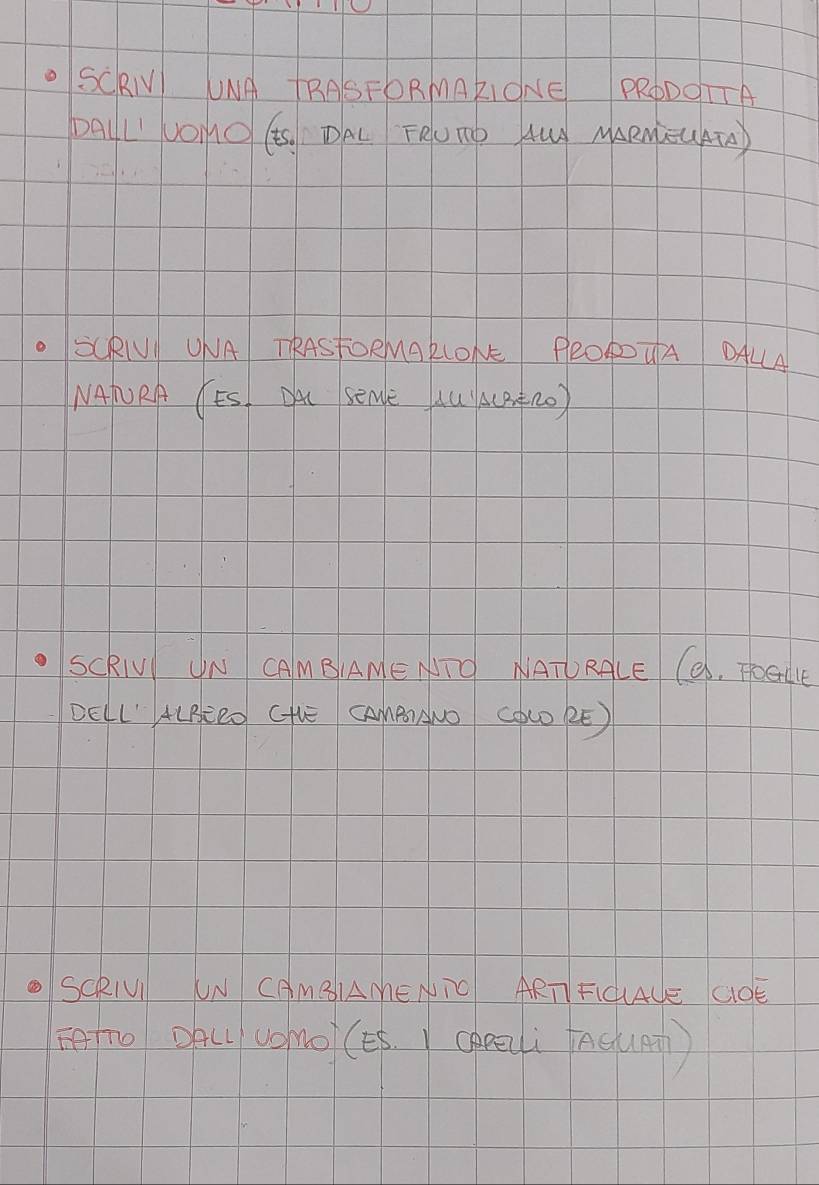 • SCRIVI UNA TRASFORMAZIONE PRODOTTA
DALL' UOMO (ES. DAL FRUTTO ALLA MARMELLATA)
• SCRIVI UNA TRASFORMAZIONE PRODOTTA DALLA
NATURA (ES. DAL SEME ALL'ALBERO)
• SCRIVI UN CAMBIAMENTO NATURALE (es. FOGLIE
DELL' ALBERO CHE CAMBIANO COLORE)
• SCRIVI UN CAMBIAMENTO ARTIFICIALE CIOÈ
FATTO DALL' UOMO (ES. I CAPELLI TAGLIATI)